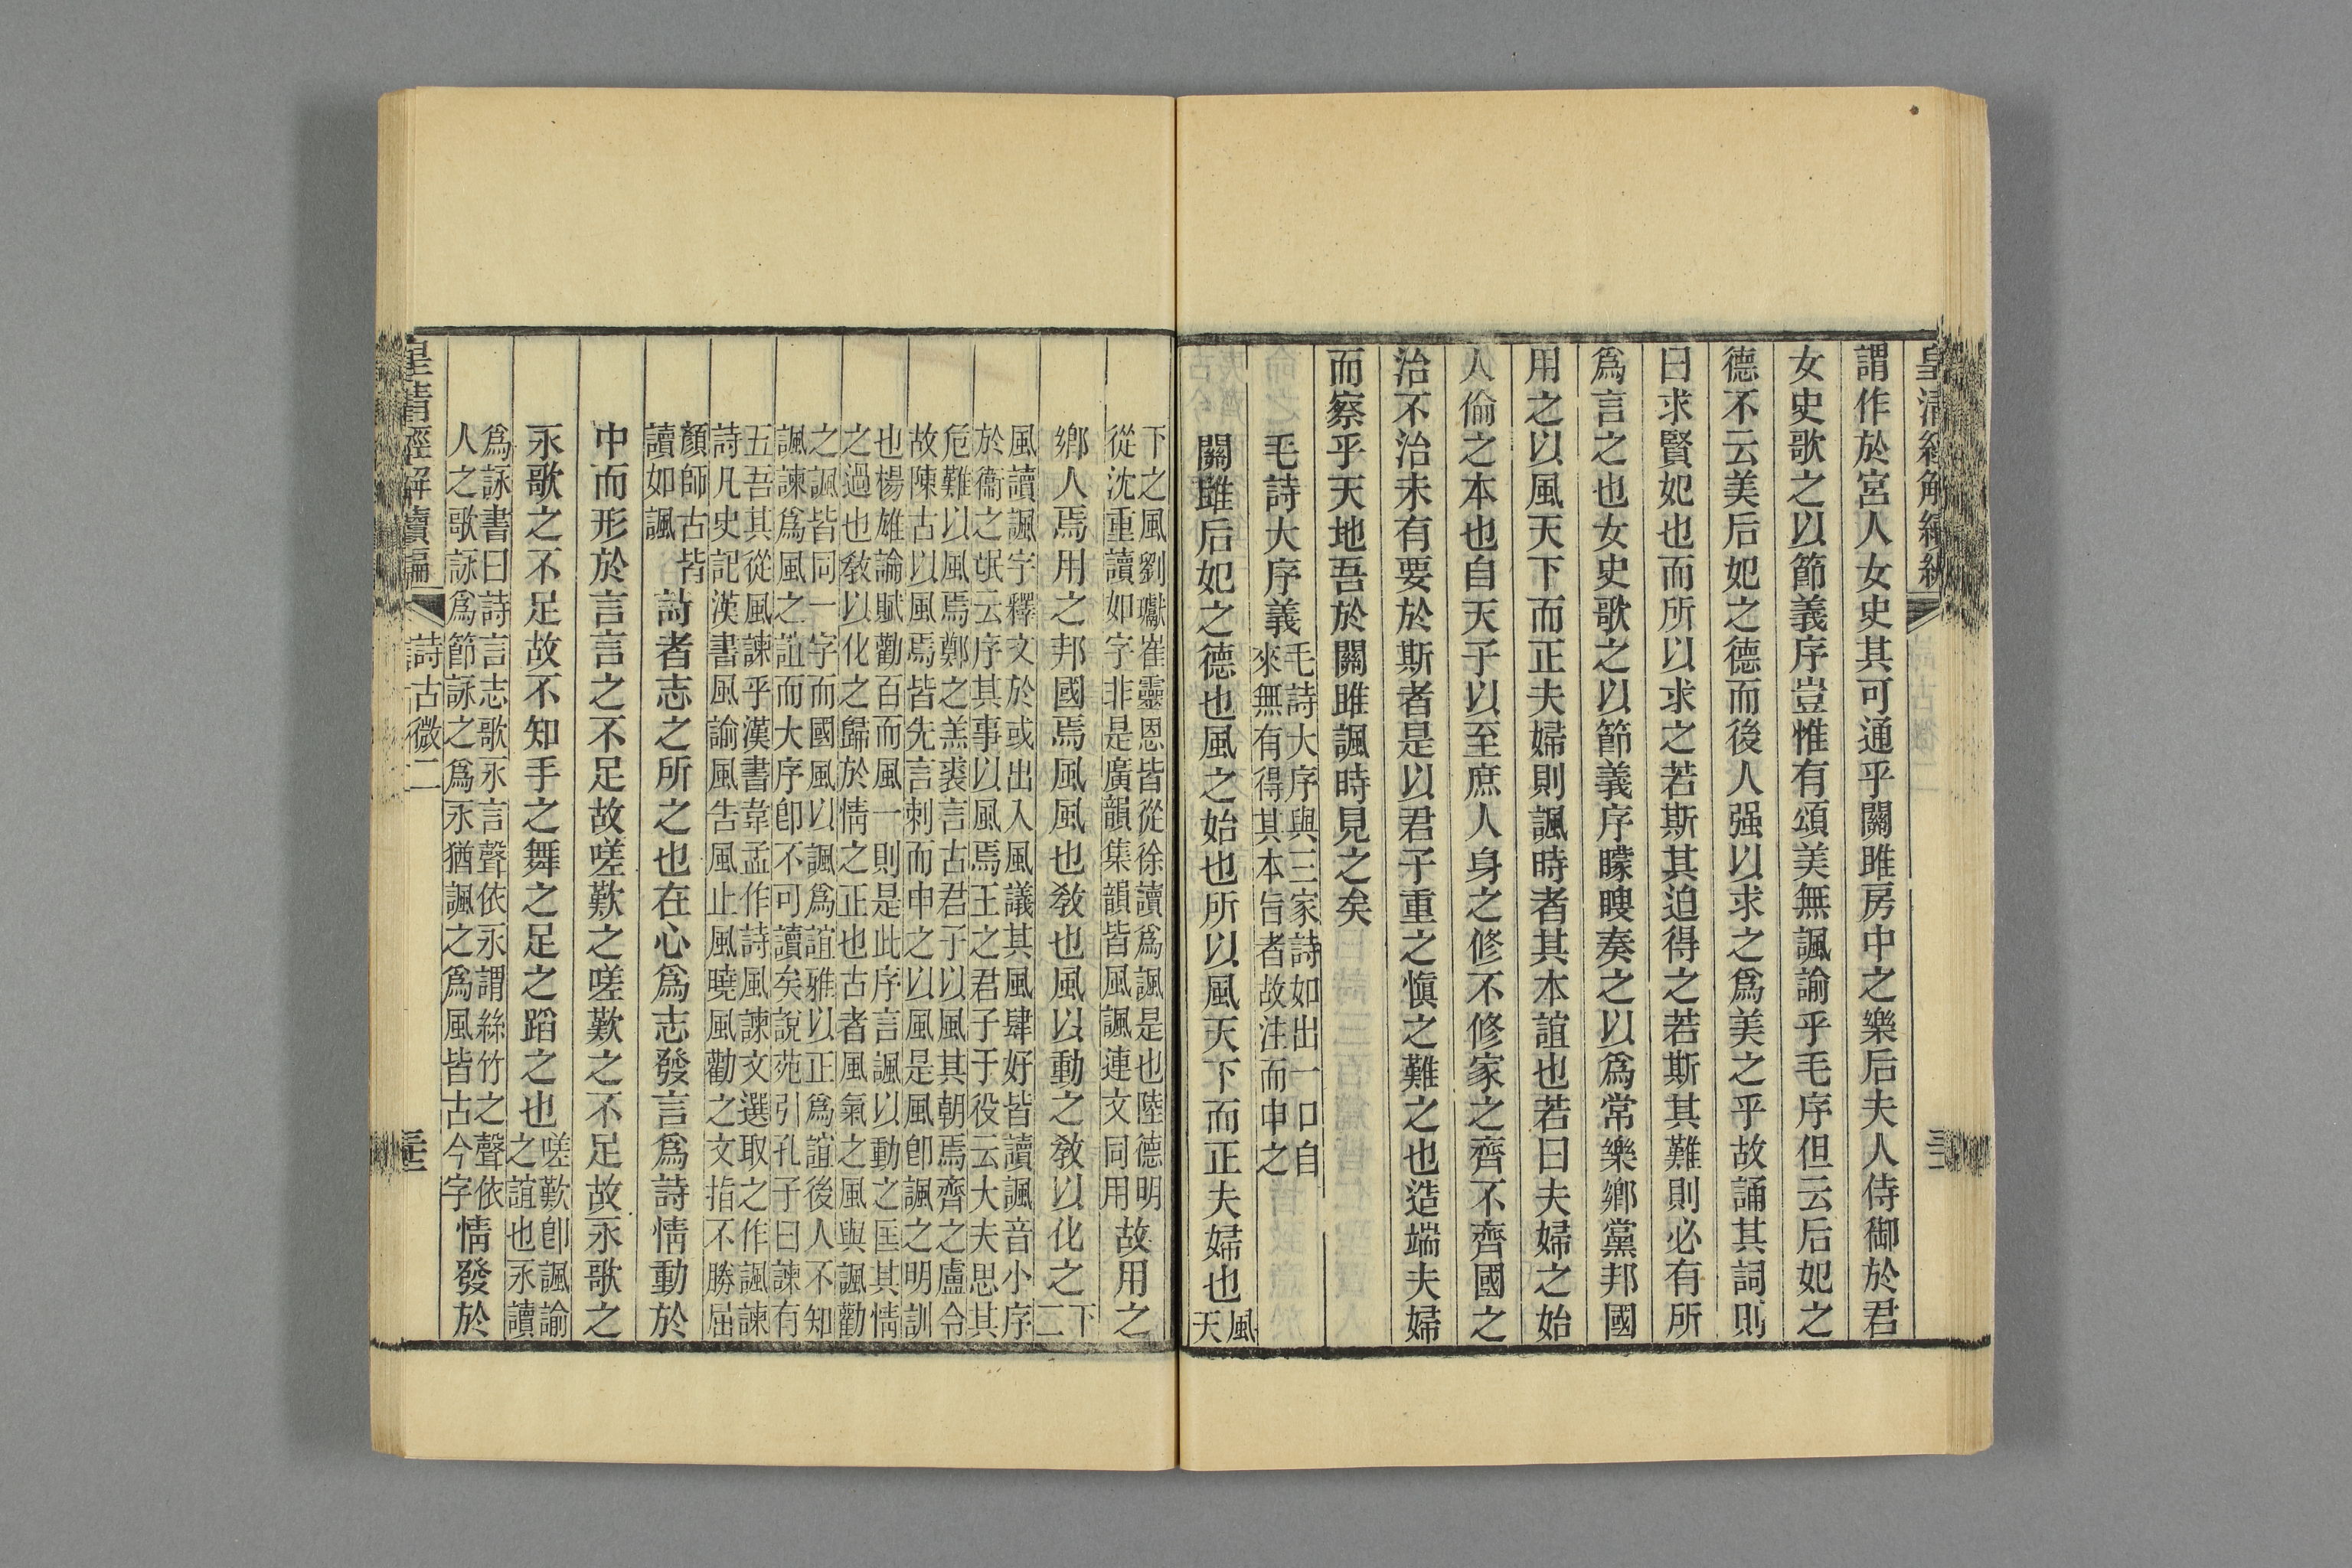 皇清經解續編
謂作於宮人女史其可通乎關雎房中之樂后夫人侍御於君
女史歌之以節義序豈惟有頌美無諷諭乎毛序但云后妃之
德不云美后妃之德而後人强以求之爲美之乎故誦其詞則
曰求賢妃也而所以求之若斯其迫得之若斯其難則必有所
爲言之也女史歌之以節義序矇瞍奏之以爲常樂鄉黨邦國
用之以風天下而正夫婦則諷時者其本誼也若曰夫婦之始
人倫之本也自天子以至庶人身之修不修家之齊不齊國之
治不治未有要於斯者是以君子重之愼之難之也造端夫婦
而察乎天地吾於關雎諷時見之矣
毛詩大序義毛詩大序與三家詩如出一口自
來無有得其本旨者故注而申之
關雎后妃之德也風之始也所以風天下而正夫婦也風
天
下之風劉瓛崔靈恩皆從徐讀爲諷是也陸德明
從沈重讀如字非是廣韻集韻皆風諷連文同用故用之
鄉人焉用之邦國焉風風也敎也風以動之敎以化之下
二
風讀諷字釋文於或出入風議其風肆好皆讀諷音小序
於衞之氓云序其事以風焉王之君子于役云大夫思其
危難以風焉鄭之羔裘言古君子以風其朝焉齊之盧令
故陳古以風焉皆先言刺而申之以風是風卽諷之明訓
也楊雄論賦勸百而風一則是此序言諷以動之匡其情
之過也敎以化之歸於情之正也古者風氣之風與諷勸
之諷皆同一字而國風以諷爲誼雅以正爲誼後人不知
諷諫爲風之誼而大序卽不可讀矣說苑引孔子曰諫有
五吾其從風諫乎漢書韋孟作詩風諫文選取之作諷諫
詩凡史記漢書風諭風告風止風曉風勸之文指不勝屈
顏師古皆
讀如諷詩者志之所之也在心爲志發言爲詩情動於
中而形於言言之不足故嗟歎之嗟歎之不足故永歌之
永歌之不足故不知手之舞之足之蹈之也嗟歎卽諷諭
之誼也永讀
爲詠書曰詩言志歌永言聲依永謂絲竹之聲依
人之歌詠爲節詠之爲永猶諷之爲風皆古今字情發於
皇清經解續編
詩古微二